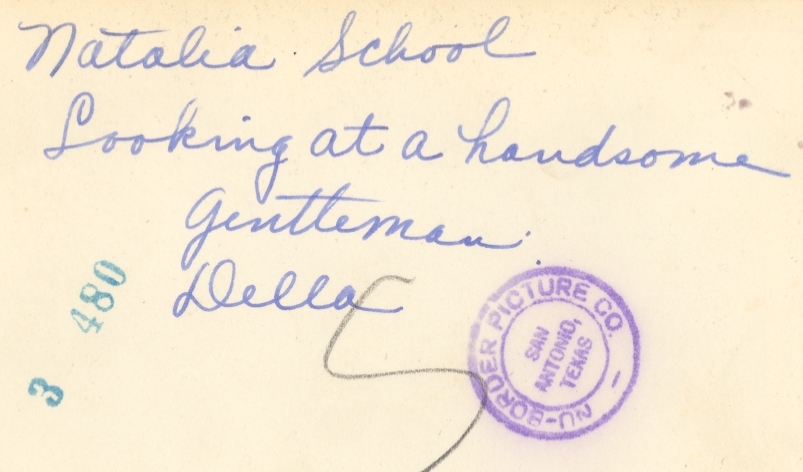 Natalia School
Looking at a handsome
Gentleman.
Della
3 480
NU-BORDER PICTURE CO.
SAN
ANTONIO,
TEXAS
5